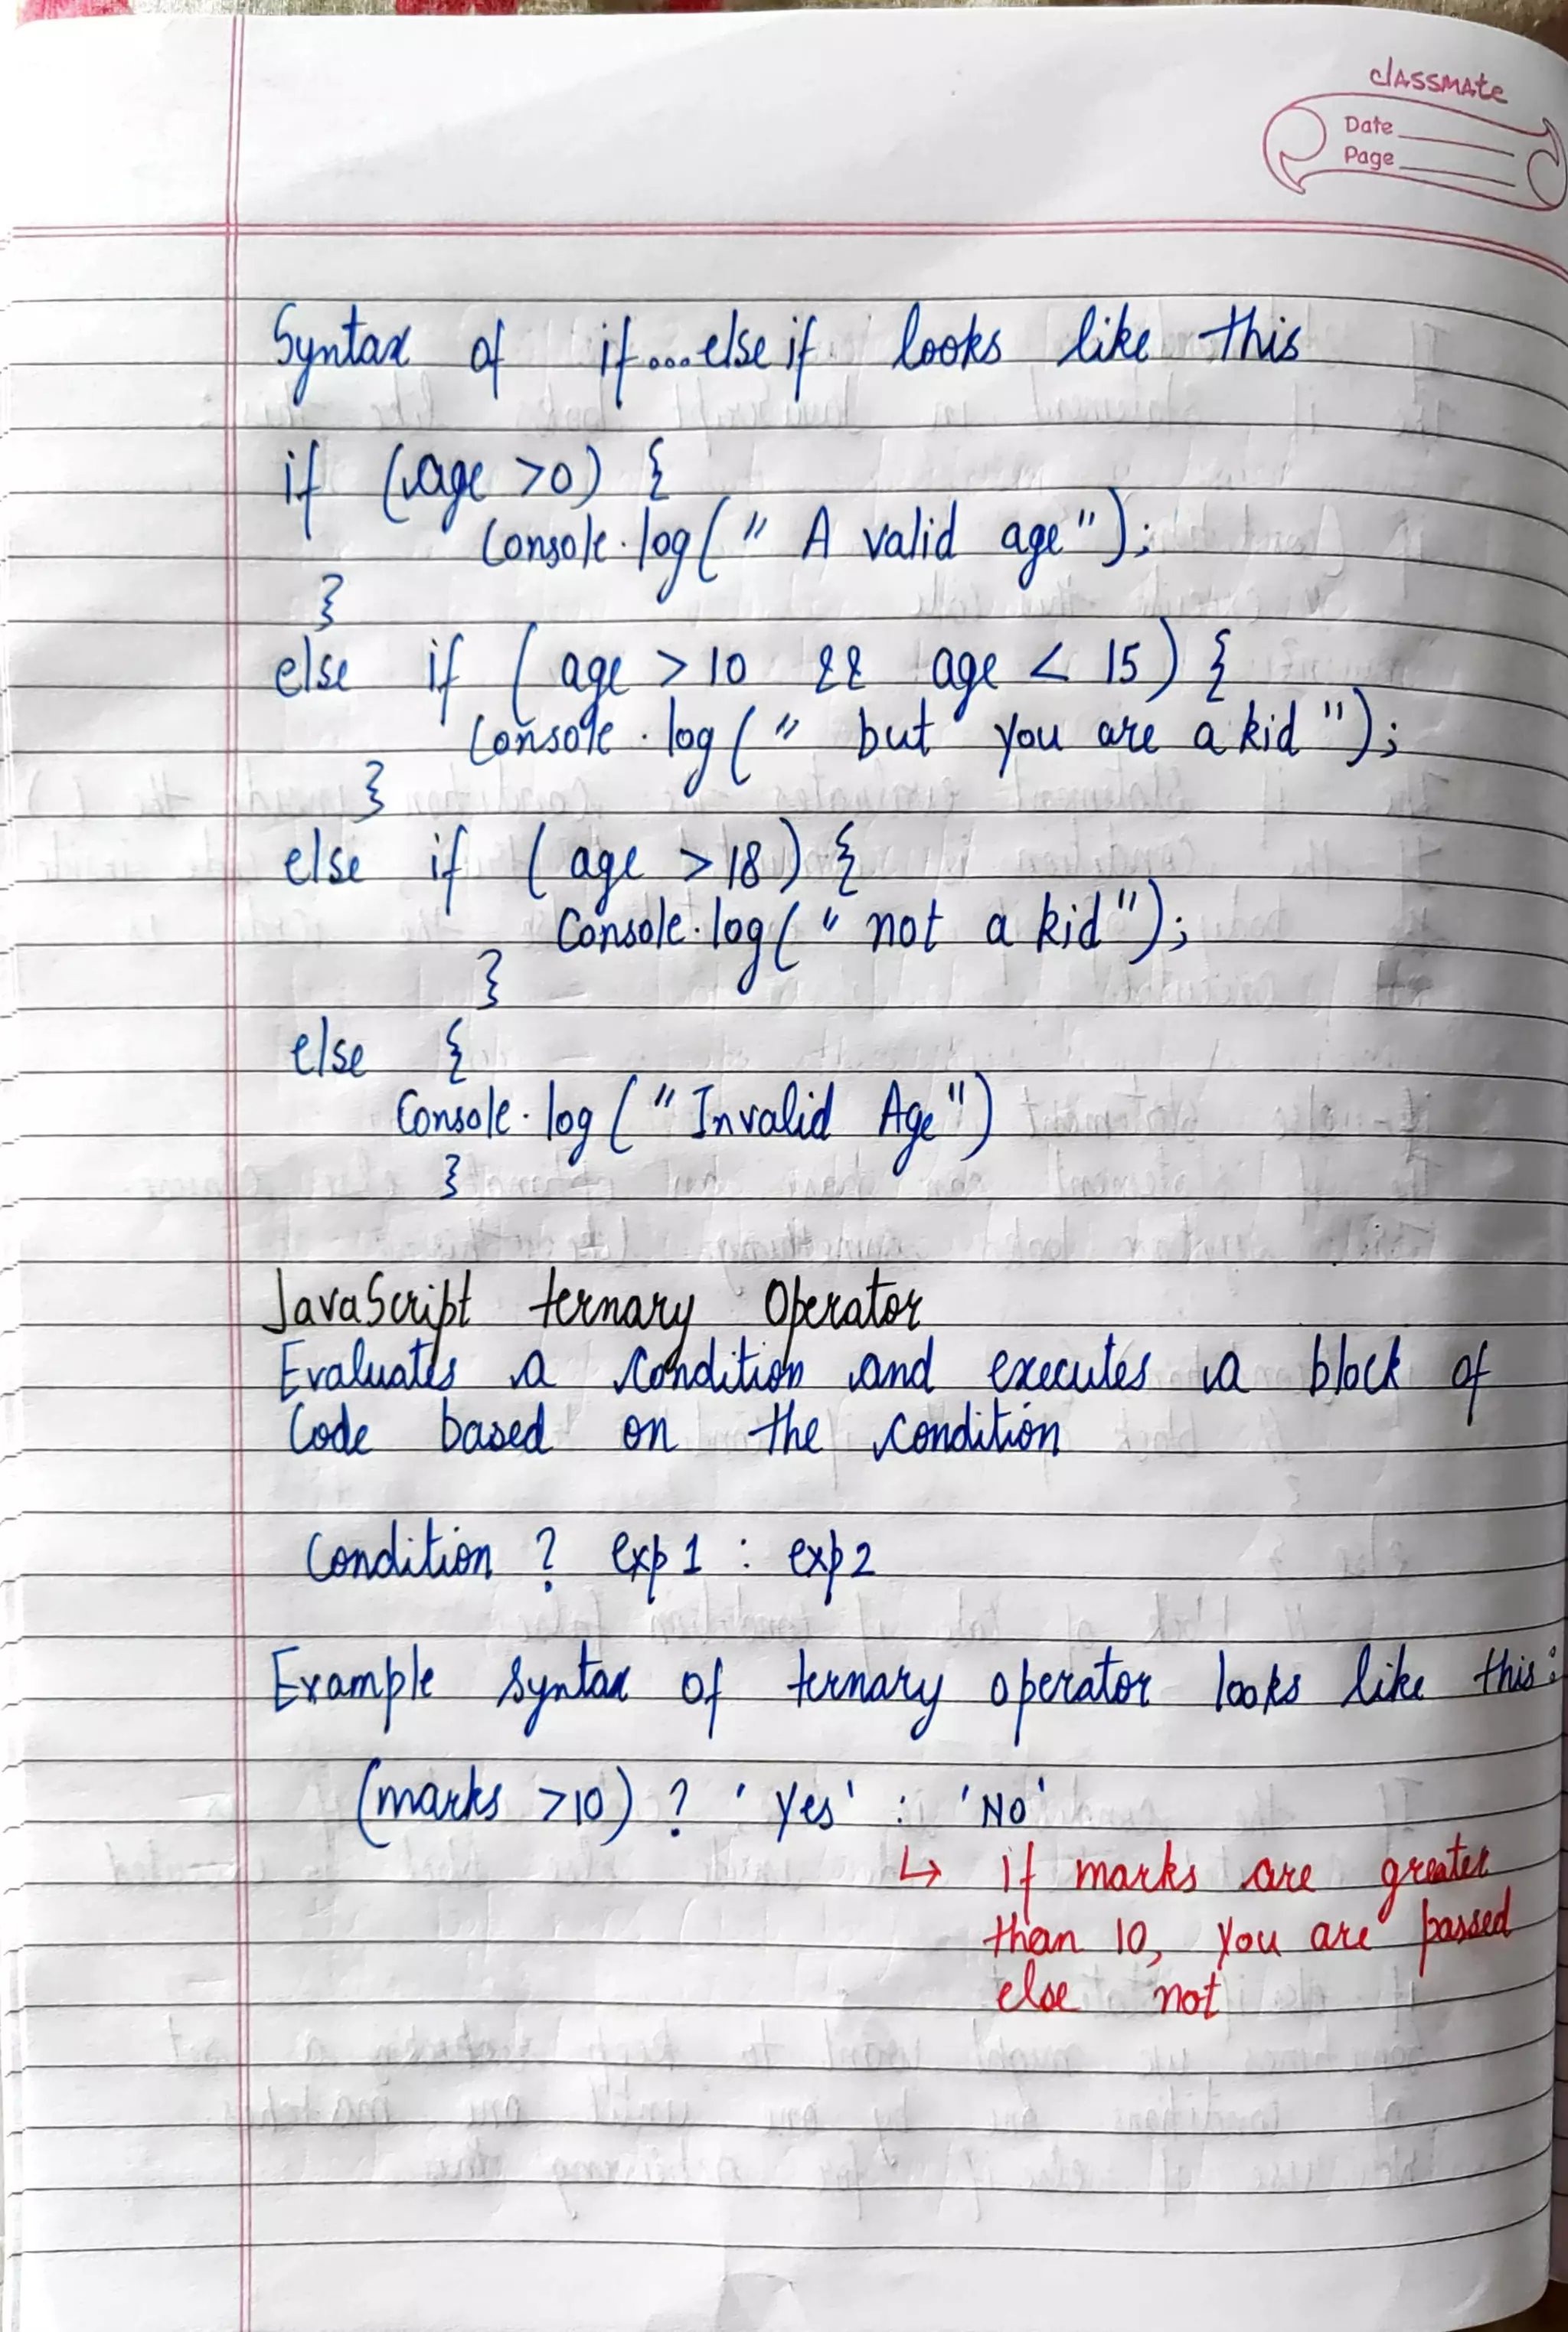 classmate
Date
Page
Syntax of if...else if looks like this
if (age >0) {
Console.log(" A valid age");
}
else if ( age > 10 && age < 15) {
Console.log(" but you are a kid");
}
else if ( age > 18) {
Console.log(" not a kid");
}
else {
Console.log("Invalid Age")
}
JavaScript ternary Operator
Evaluates a condition and executes a block of
Code based on the condition
Condition ? exp1 : exp2
Example syntax of ternary operator looks like this:
(marks >10) ? 'Yes' : 'NO'
↳ if marks are greater
than 10, you are passed
else not